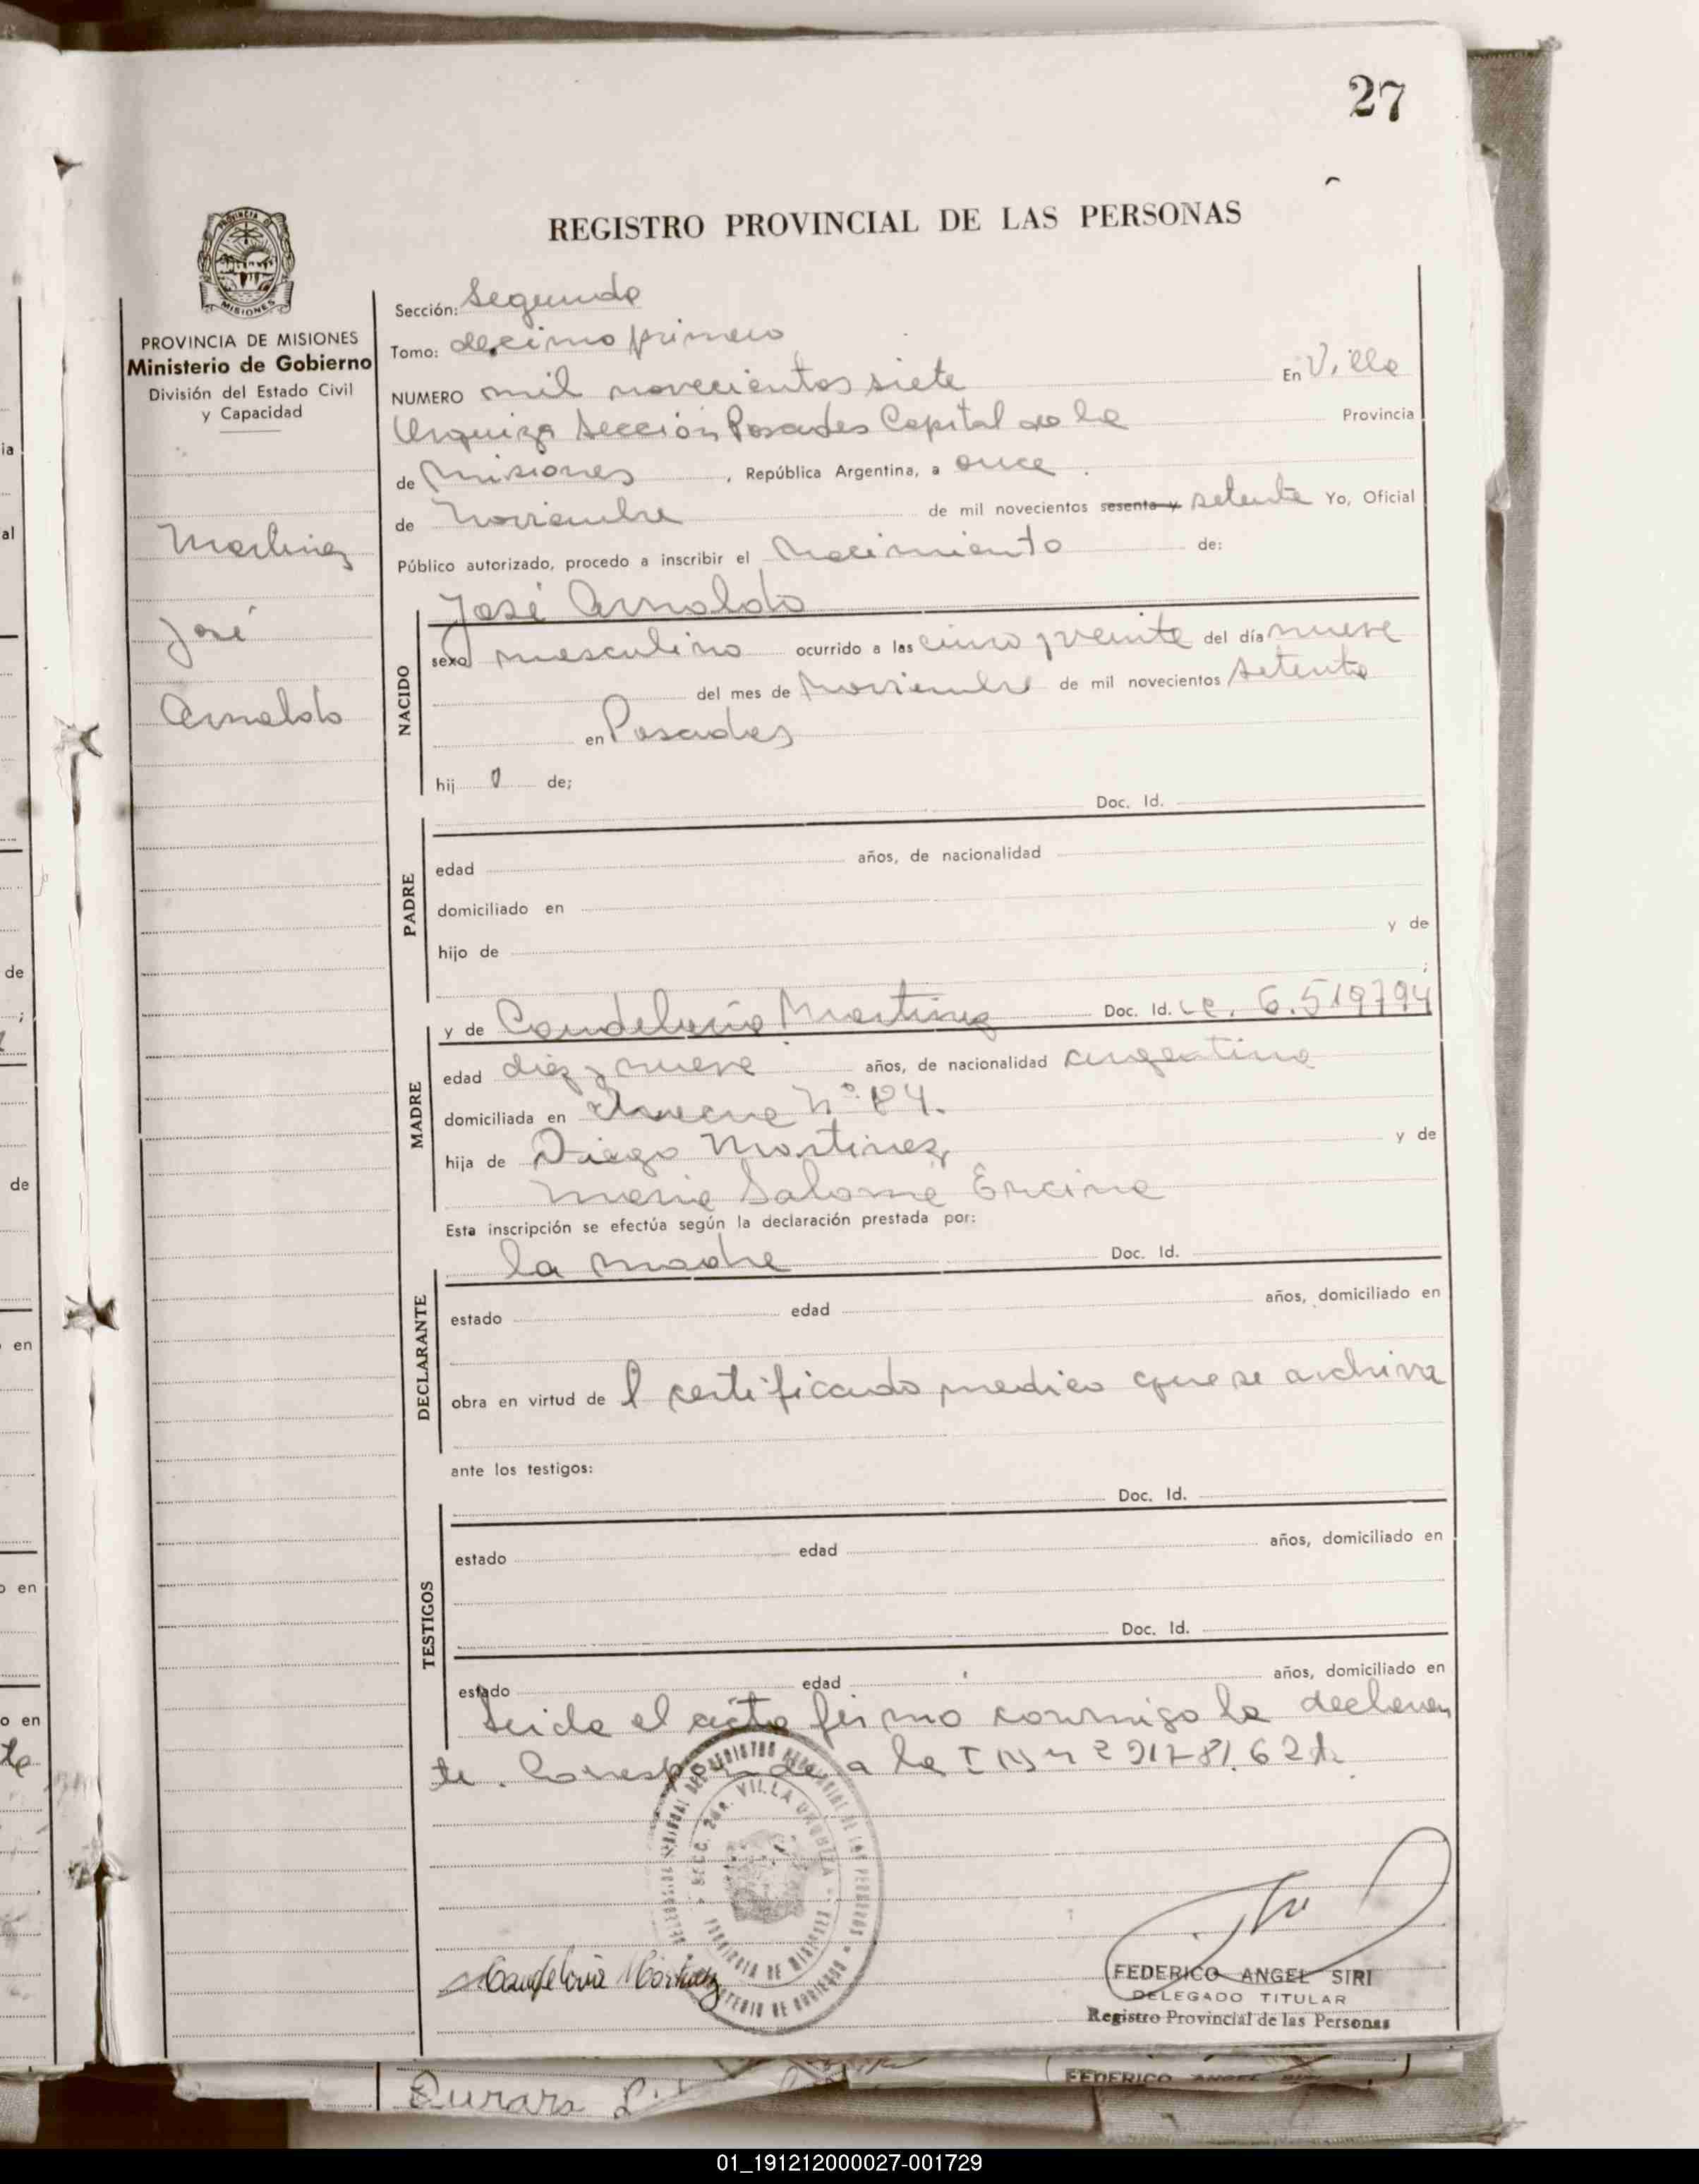 27
REGISTRO PROVINCIAL DE LAS PERSONAS
PROVINCIA DE
MISIONES
PROVINCIA DE MISIONES
Ministerio de Gobierno
División del Estado Civil
y Capacidad
Martinez
José
Arnaldo
Sección: Segunda
Tomo: decimo primero
NUMERO mil novecientos siete En Villa
Urquiza Sección Posadas Capital de la Provincia
de Misiones, República Argentina, a once
de Noviembre de mil novecientos sesenta y setenta Yo, Oficial
Público autorizado, procedo a inscribir el Nacimiento de:
José Arnaldo
NACIDO
sexo masculino ocurrido a las cinco y veinte del día nueve
del mes de Noviembre de mil novecientos setenta
en Posadas
hij o de;
Doc. Id.
PADRE
edad años, de nacionalidad
domiciliado en
hijo de y de
;
y de Candelaria Martinez Doc. Id. LC. 6.519794
MADRE
edad diez y nueve años, de nacionalidad argentina
domiciliada en Nº
hija de Diego Martinez y de
Maria Salomé Encina
Esta inscripción se efectúa según la declaración prestada por:
la madre Doc. Id.
DECLARANTE
estado edad años, domiciliado en
obra en virtud de l certificado medico que se archiva
ante los testigos:
Doc. Id.
TESTIGOS
estado edad años, domiciliado en
Doc. Id.
estado edad años, domiciliado en
Leida el acta firmo conmigo la declaran
te. Corresponde a la
SECC. 2da. VILLA URQUIZA
PROVINCIA DE MISIONES
Candelaria Martinez
FEDERICO ANGEL SIRI
DELEGADO TITULAR
Registro Provincial de las Personas
FEDERICO ANGEL
01_191212000027-001729